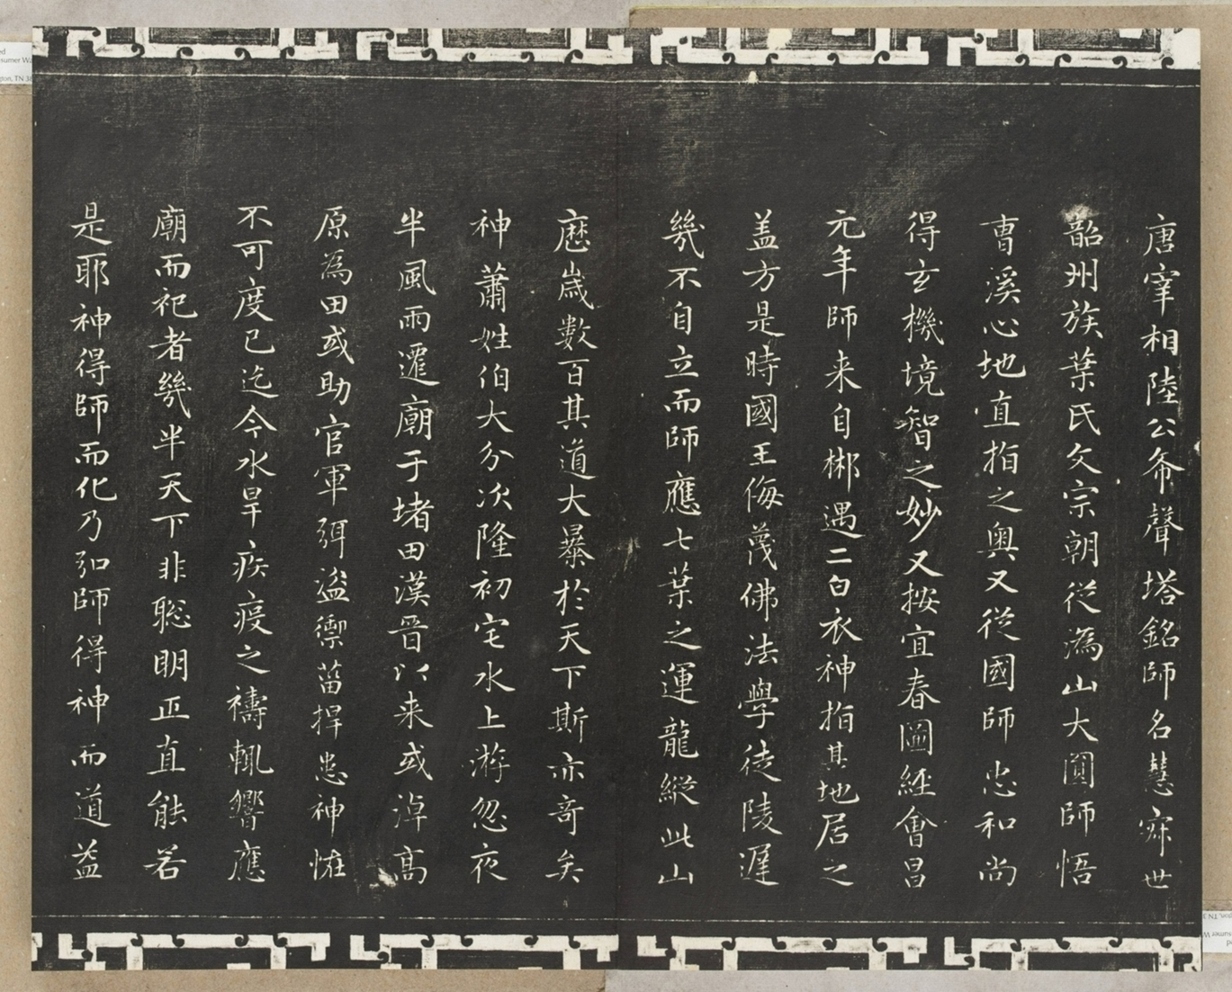 唐宰相陸公希聲塔銘師名慧寂世
韶州族葉氏文宗朝從溈山大圓師悟
曹溪心地直指之奧又從國師忠和尚
得玄機境智之妙又按宜春圖經會昌
元年師来自郴遇二白衣神指其地居之
盖方是時國王侮蔑佛法學徒陵遲
幾不自立而師應七葉之運龍縱此山
歷歲數百其道大暴於天下斯亦奇矣
神蕭姓伯大分次隆初宅水上游忽夜
半風雨遷廟于堵田漢晉以来或淖高
原為田或助官軍弭盜禦菑捍患神恠
不可度已迄今水旱疾疫之禱輒響應
廟而祀者幾半天下非聡明正直能若
是耶神得師而化乃弘師得神而道益